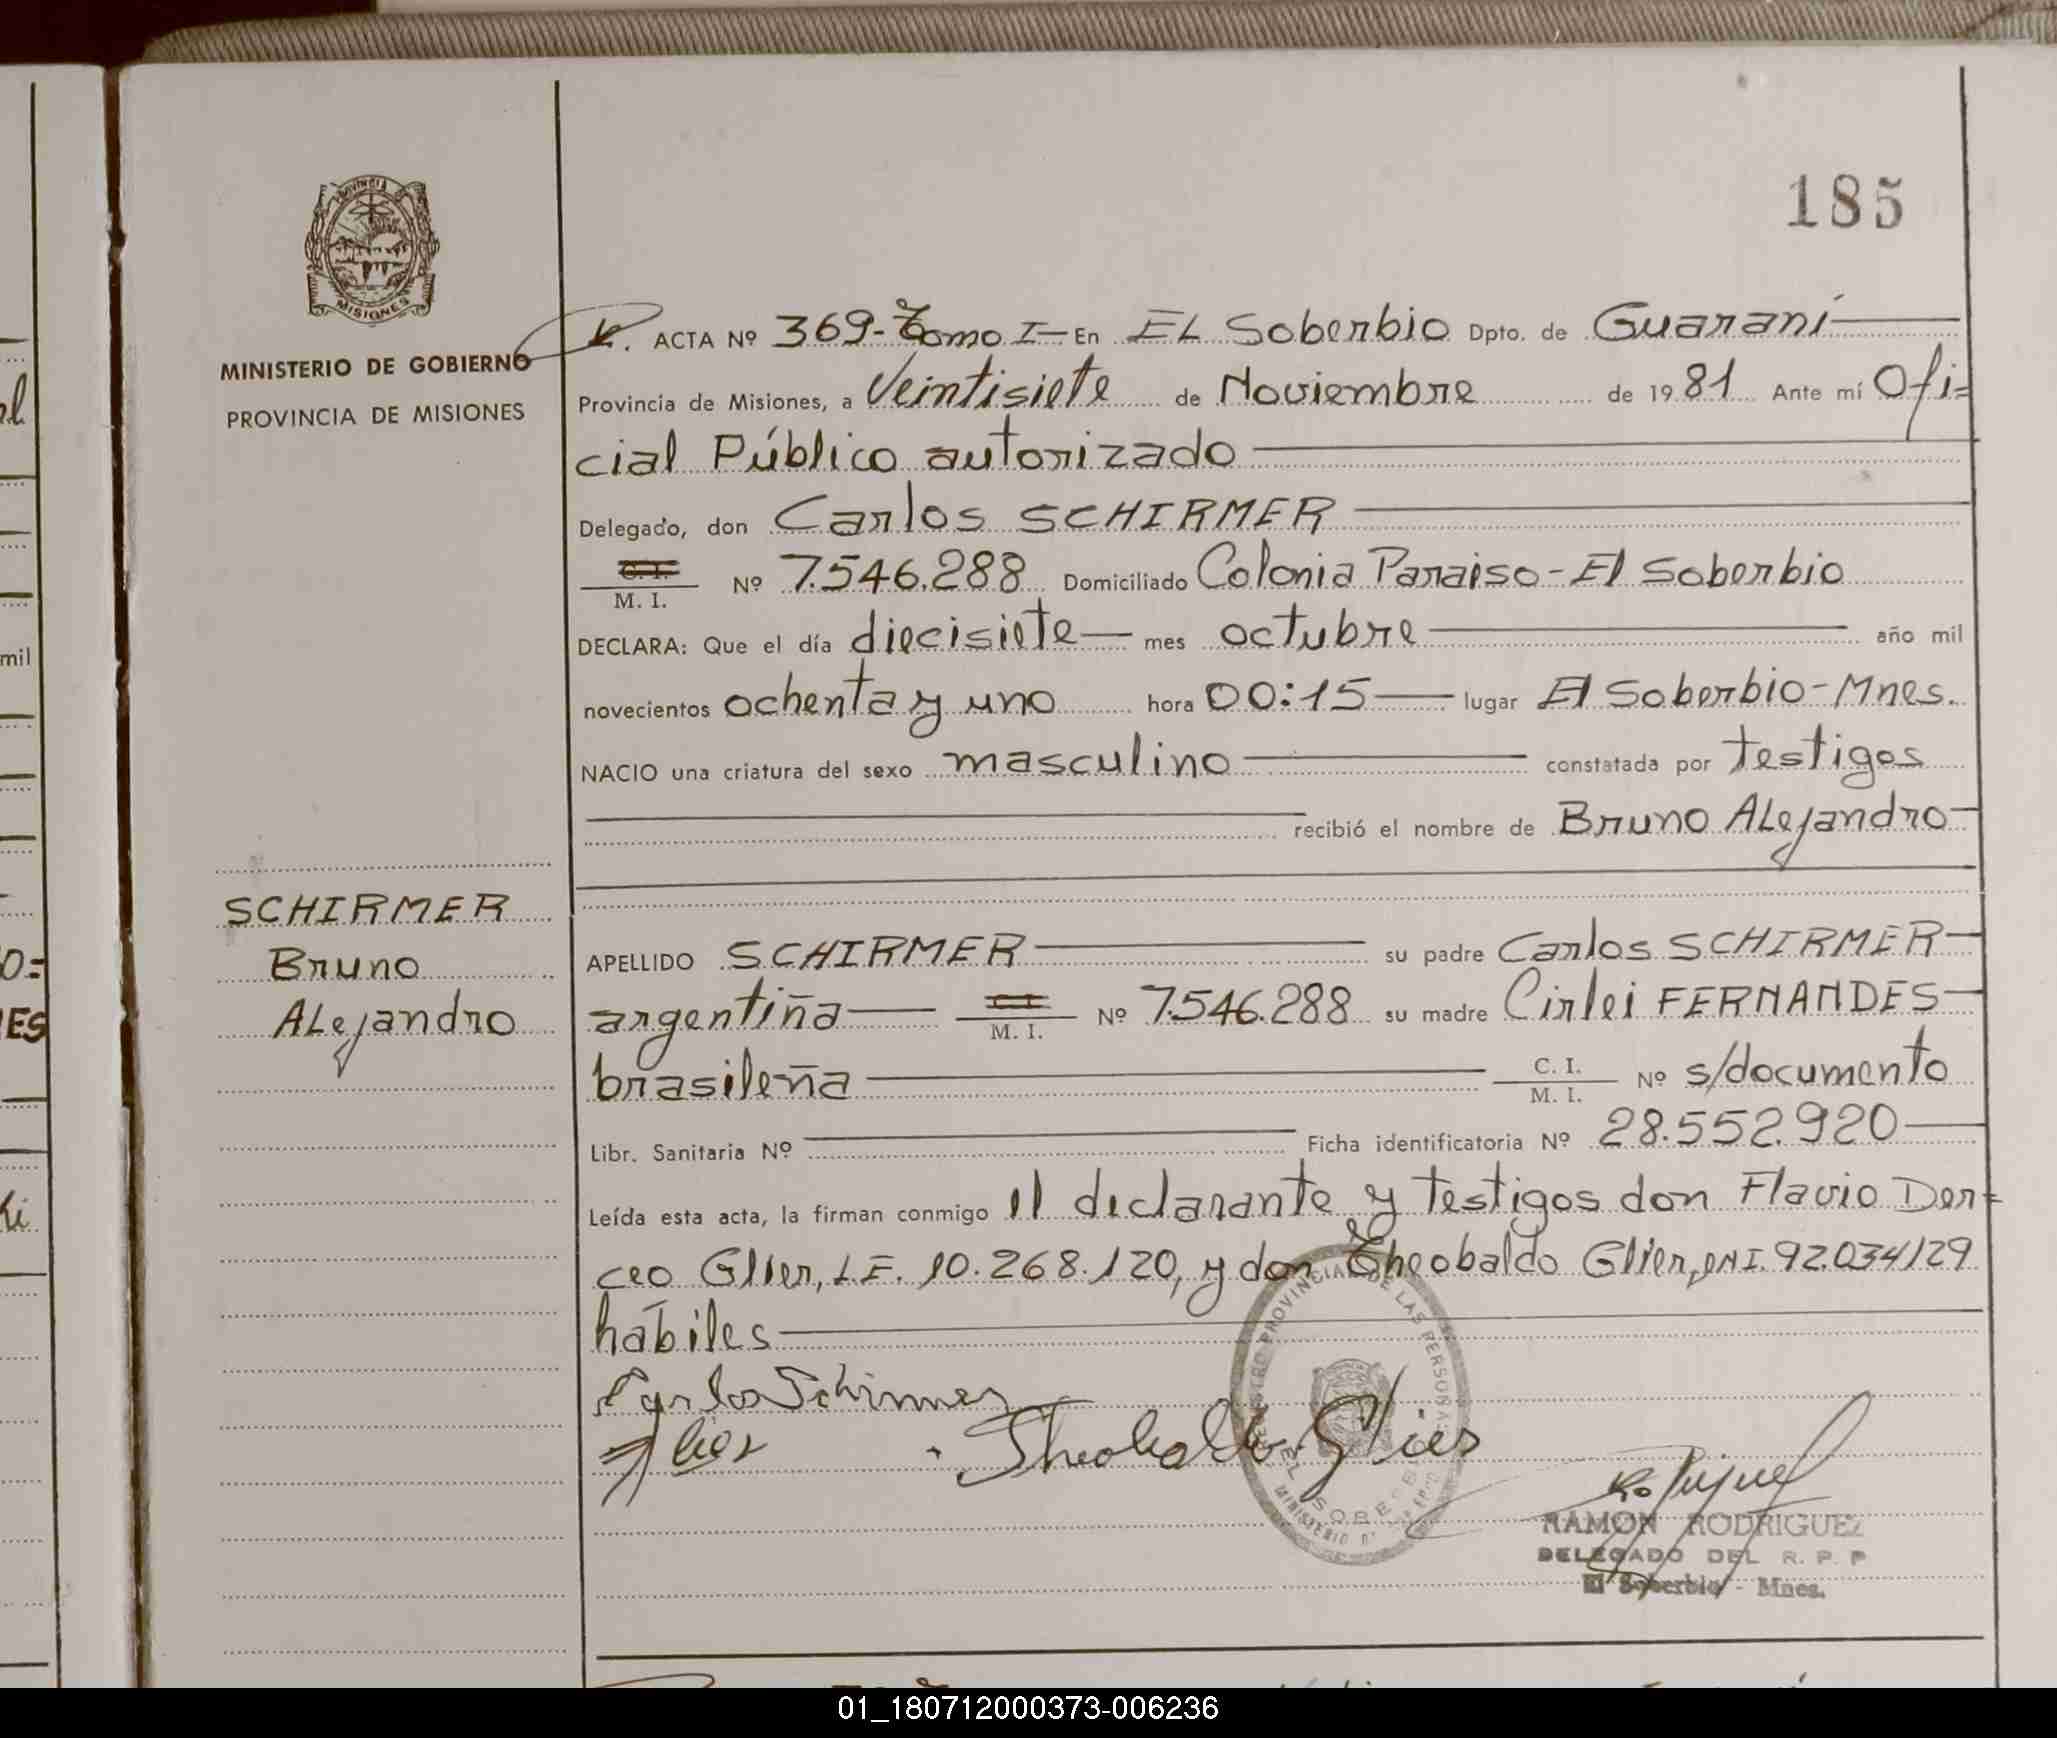 185
PROVINCIA DE
MISIONES
MINISTERIO DE GOBIERNO
PROVINCIA DE MISIONES
ACTA Nº 369-Tomo I- En EL Soberbio Dpto. de Guaraní
Provincia de Misiones, a Veintisiete de Noviembre de 1981 Ante mí Ofi=
cial Público autorizado
Delegado, don Carlos SCHIRMER
C. I. M. I. Nº 7.546.288 Domiciliado Colonia Paraiso-El Soberbio
DECLARA: Que el día diecisiete mes octubre año mil
novecientos ochenta y uno hora 00:15 lugar El Soberbio-Mnes.
NACIO una criatura del sexo masculino constatada por testigos
recibió el nombre de Bruno ALejandro
SCHIRMER
Bruno
ALejandro
APELLIDO SCHIRMER su padre Carlos SCHIRMER
argentina M. I. Nº 7.546.288 su madre Cirlei FERNANDES
brasileña C. I. M. I. Nº s/documento
Libr. Sanitaria Nº Ficha identificatoria Nº 28.552.920
Leída esta acta, la firman conmigo el declarante y testigos don Flavio Der=
ceo Glier, L.E. 10.268.120, y don Theobaldo Glier, DNI. 92.034129
hábiles
Carlos Schirmer
Theobaldo Glier
PROVINCIAL DE LAS PERSONAS
EL SOBERBIO
MINISTERIO
RAMON RODRIGUEZ
DELEGADO DEL R. P. P
El Soberbio - Mnes.
mil
ES
01_180712000373-006236